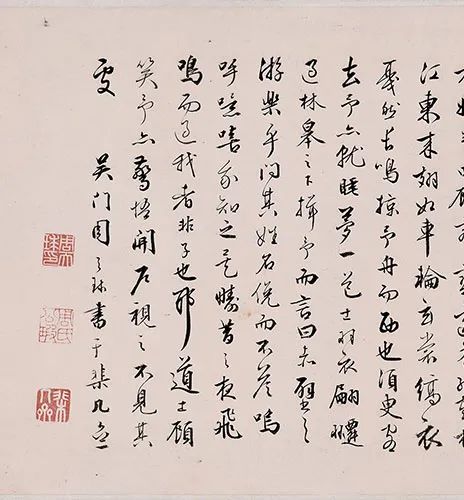 江東來翅如車輪玄裳縞衣
戛然長鳴掠予舟而西也須臾客
去予亦就睡夢一道士羽衣翩躚
過林皋之下揖予而言曰赤壁之
游樂乎問其姓名俛而不答嗚
呼噫嘻我知之矣疇昔之夜飛
鳴而過我者非子也耶道士顧
笑予亦驚悟開戶視之不見其
處
吳門周天球書于棐几
周天球印
周氏公瑕